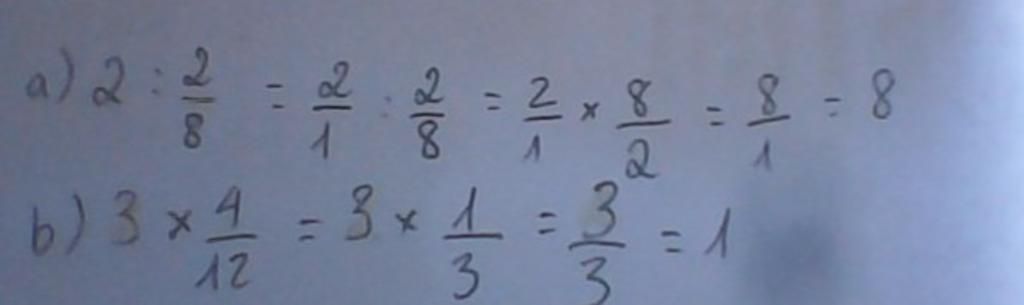 a) 2 : 2/8 = 2/1 : 2/8 = 2/1 × 8/2 = 8/1 = 8
b) 3 × 4/12 = 3 × 1/3 = 3/3 = 1